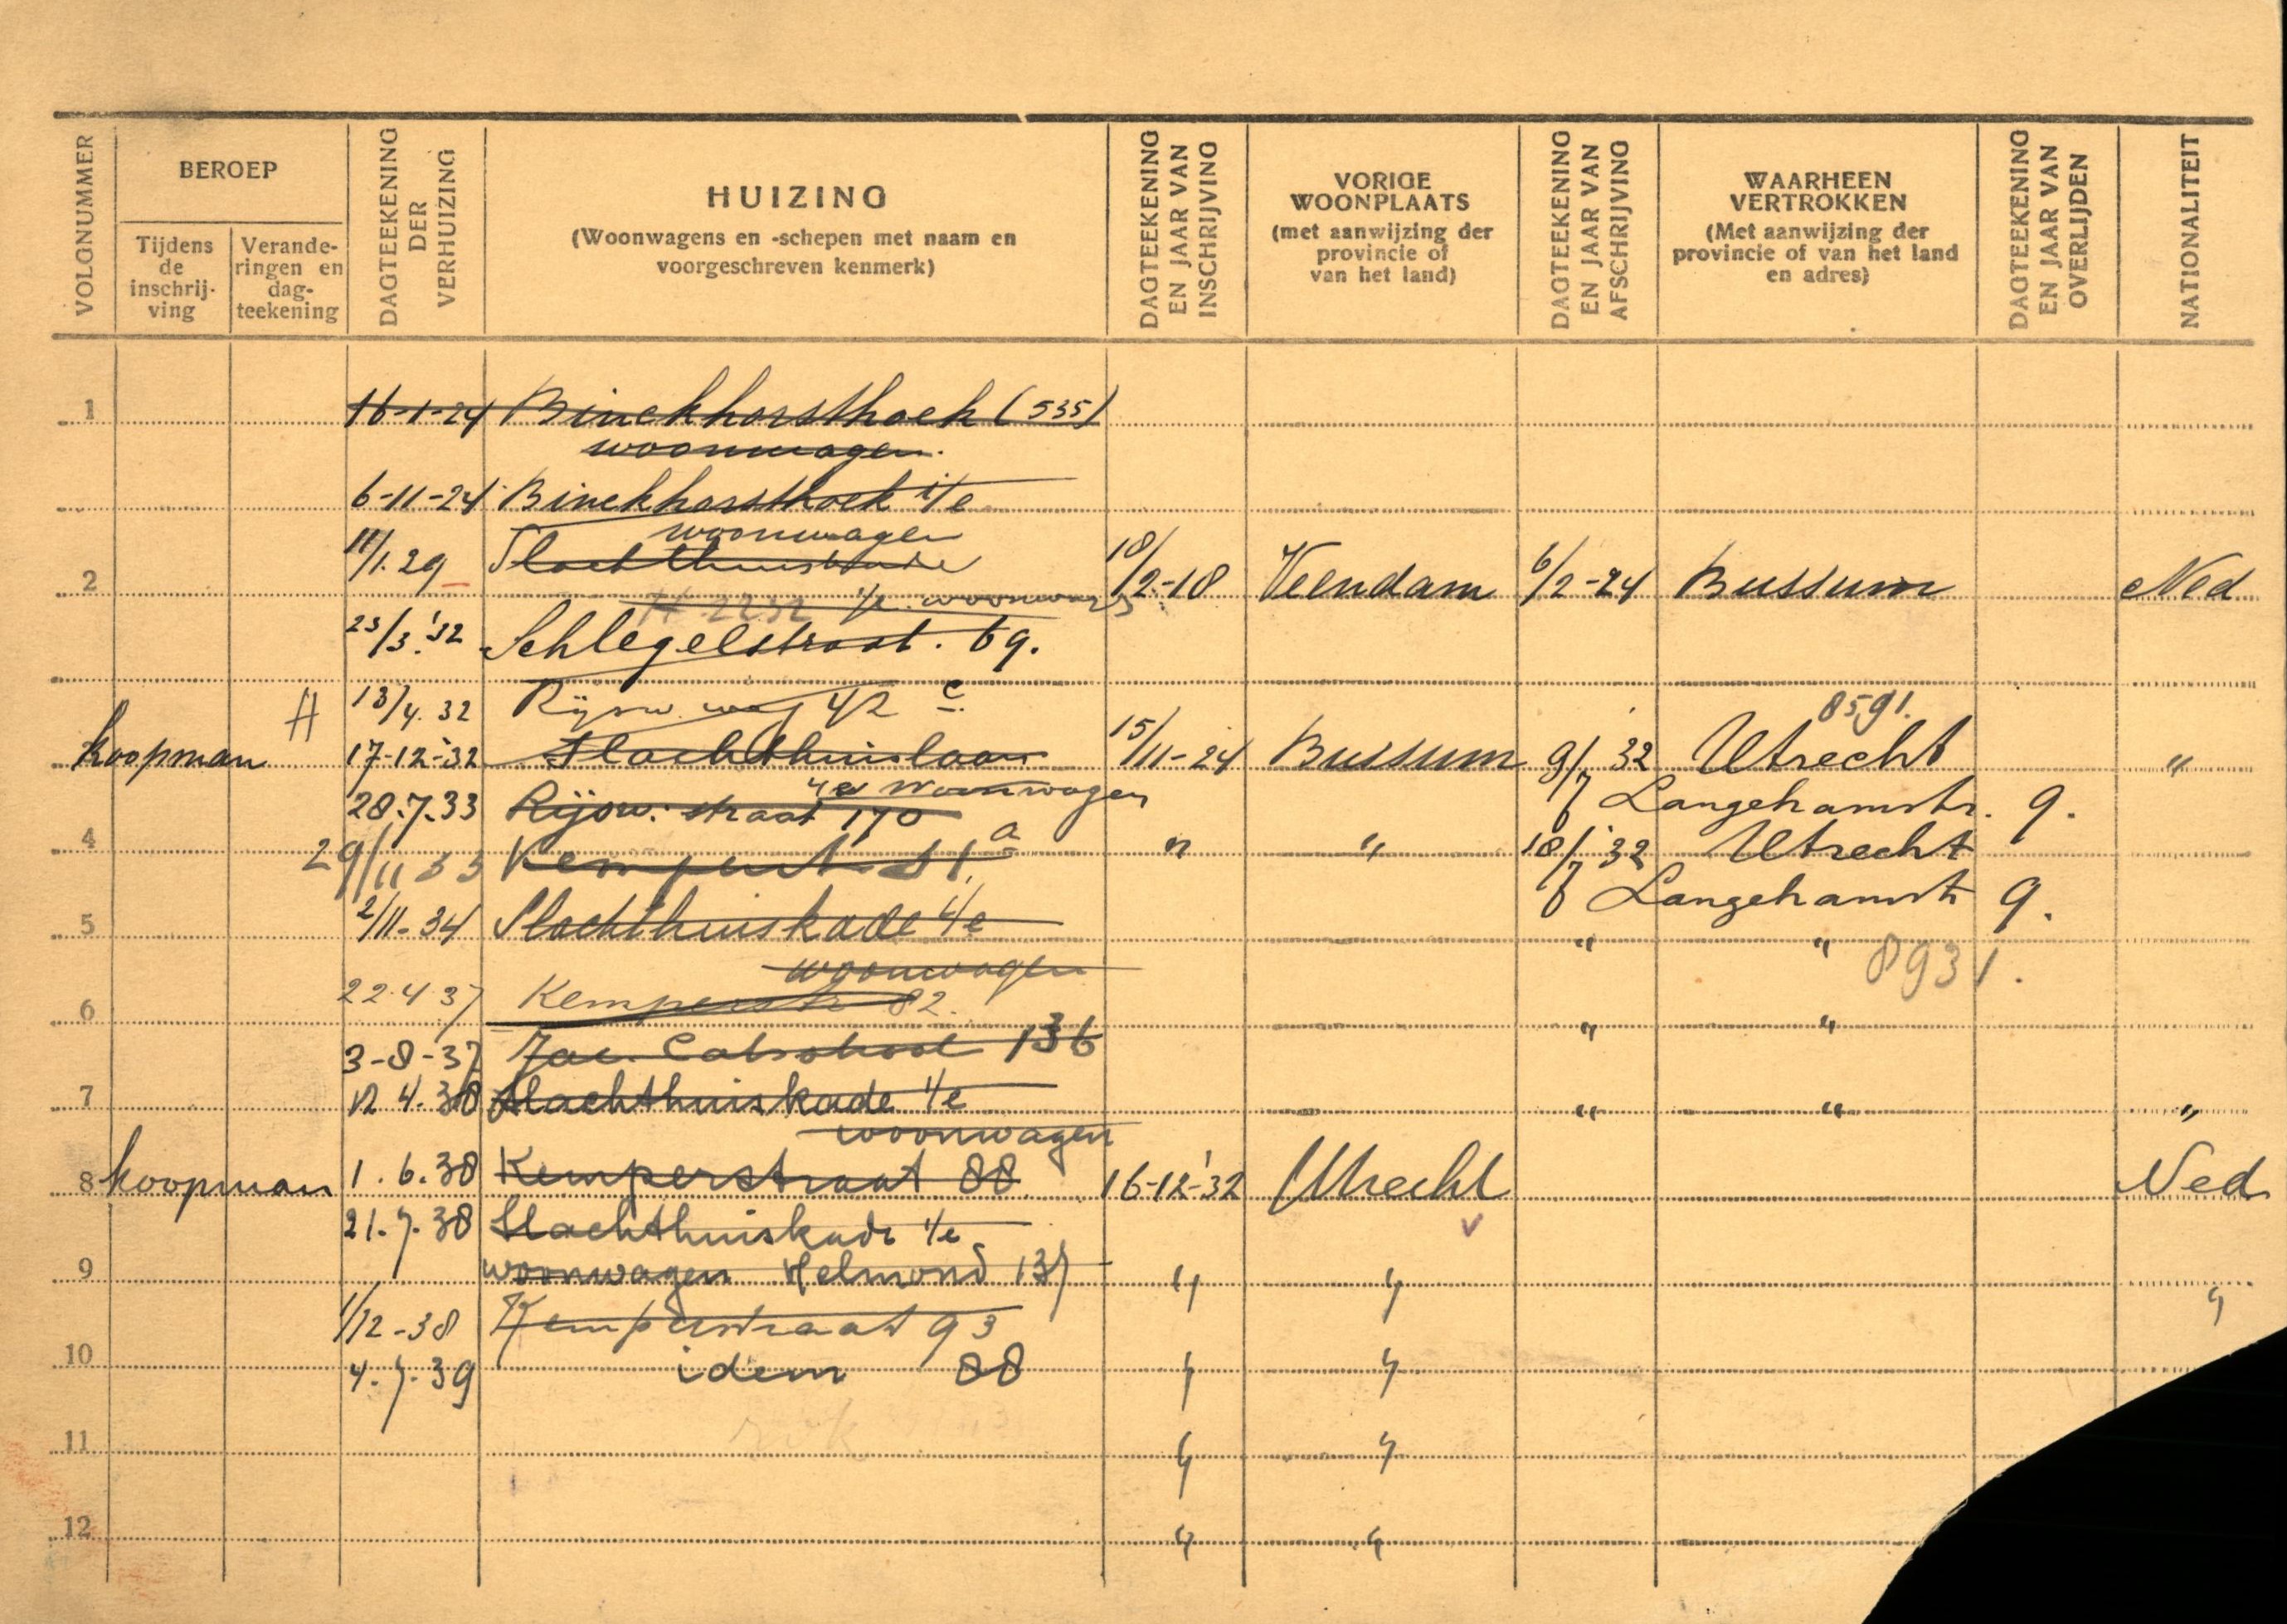 VOLGNUMMER
BEROEP
Tijdens de inschrij-ving
Verande-ringen en dag-teekening
DAGTEEKENING DER VERHUIZING
HUIZING
(Woonwagens en -schepen met naam en
voorgeschreven kenmerk)
DAGTEEKENING EN JAAR VAN INSCHRIJVING
VORIGE
WOONPLAATS
(met aanwijzing der
provincie of
van het land)
DAGTEEKENING EN JAAR VAN AFSCHRIJVING
WAARHEEN
VERTROKKEN
(Met aanwijzing der
provincie of van het land
en adres)
DAGTEEKENING EN JAAR VAN OVERLIJDEN
NATIONALITEIT
1 16-1-24 Binckhorsthoek (535)
woonwagen.
6-11-24 Binckhorsthoek i/e
woonwagen
11/1.29 Slachthuiskade
2 18/2-18 Veendam 6/2-24 Bussum Ned
H 2232 i/e woonwag
23/3.'32 Schlegelstraat. 69.
H 13/4.32 Rijsw. weg 42 c
8591.
koopman 17-12-'32 Slachthuislaan 15/11-24 Bussum 9/7 32 Utrecht "
i/e Woonwagen
28.7.33 Rijsw. straat 170 Langehamstr. 9.
4 29/11 33 Kemperst. 51.a " " 18/7 '32 Utrecht
2/11-34 Slachthuiskade i/e Langehamstr 9.
5 " " 8931.
woonwagen
22.4 37 Kemperstr 82.
6 " "
3-8-37 Jac. Catsstraat 136
7 12 4.38 Slachthuiskade i/e " " "
woonwagen
8 koopman 1.6.38 Kemperstraat 88 16-12-'32 Utrecht Ned
21.7.38 Slachthuiskade i/e
9 woonwagen Helmond 137 " " "
1/12-38 Kemperstraat 93
10 4.7.39 idem 88 " "
11 " "
12 " "